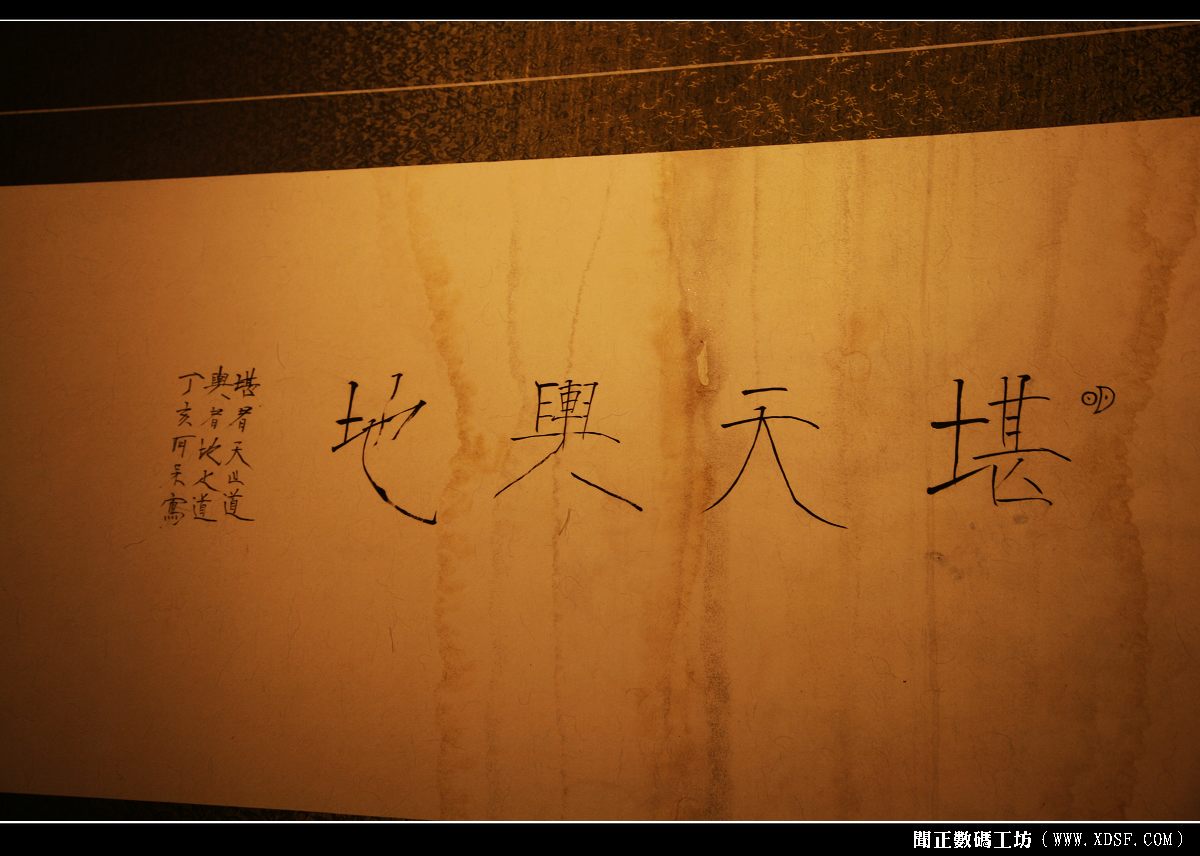 堪天輿地
堪者天之道
輿者地之道
丁亥阿吴寫
聞正數碼工坊（WWW.XDSF.COM）